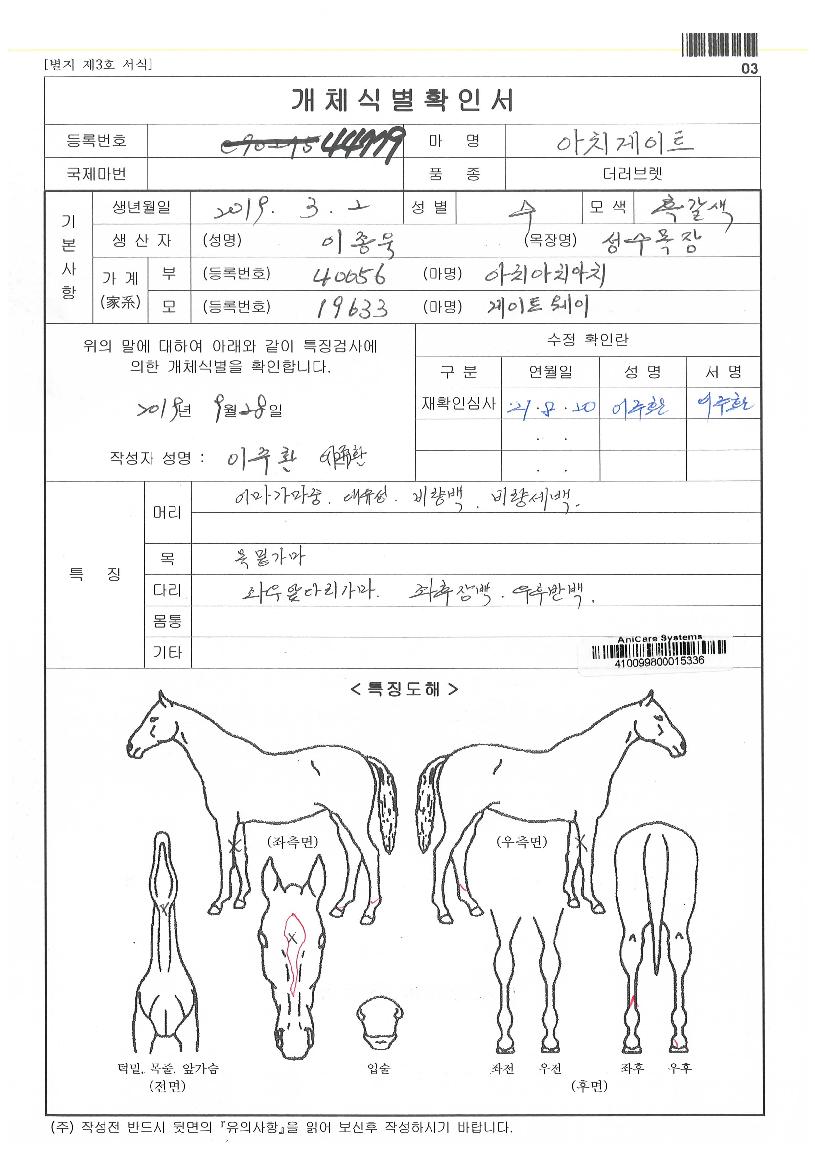 [별지 제3호 서식]
03
개체식별확인서
등록번호 44779 마 명 아치게이트
국제마번 품 종 더러브렛
기본사항
생년월일 2019. 3. 2 성별 수 모색 흑갈색
생산자 (성명) 이종욱 (목장명) 성수목장
가계 (家系) 부 (등록번호) 40056 (마명) 아치아치아치
모 (등록번호) 19633 (마명) 게이트웨이
위의 말에 대하여 아래와 같이 특징검사에
의한 개체식별을 확인합니다.
2019년 9월 28일
작성자 성명 : 이주환 이주환
수정 확인란
구분 연월일 성명 서명
재확인심사 21. 8. 20 이주환 이주환
. .
. .
특 징
머리 이마가마중. 대유성. 비량백. 비량세백.
목 목밑가마
다리 좌우앞다리가마. 좌후장백. 우후반백.
몸통
기타
AniCare Systems
410099800015336
< 특징도해 >
(좌측면) (우측면)
턱밑. 목줄. 앞가슴 입술 좌전 우전 좌후 우후
(전면) (후면)
(주) 작성전 반드시 뒷면의 『유의사항』을 읽어 보신후 작성하시기 바랍니다.